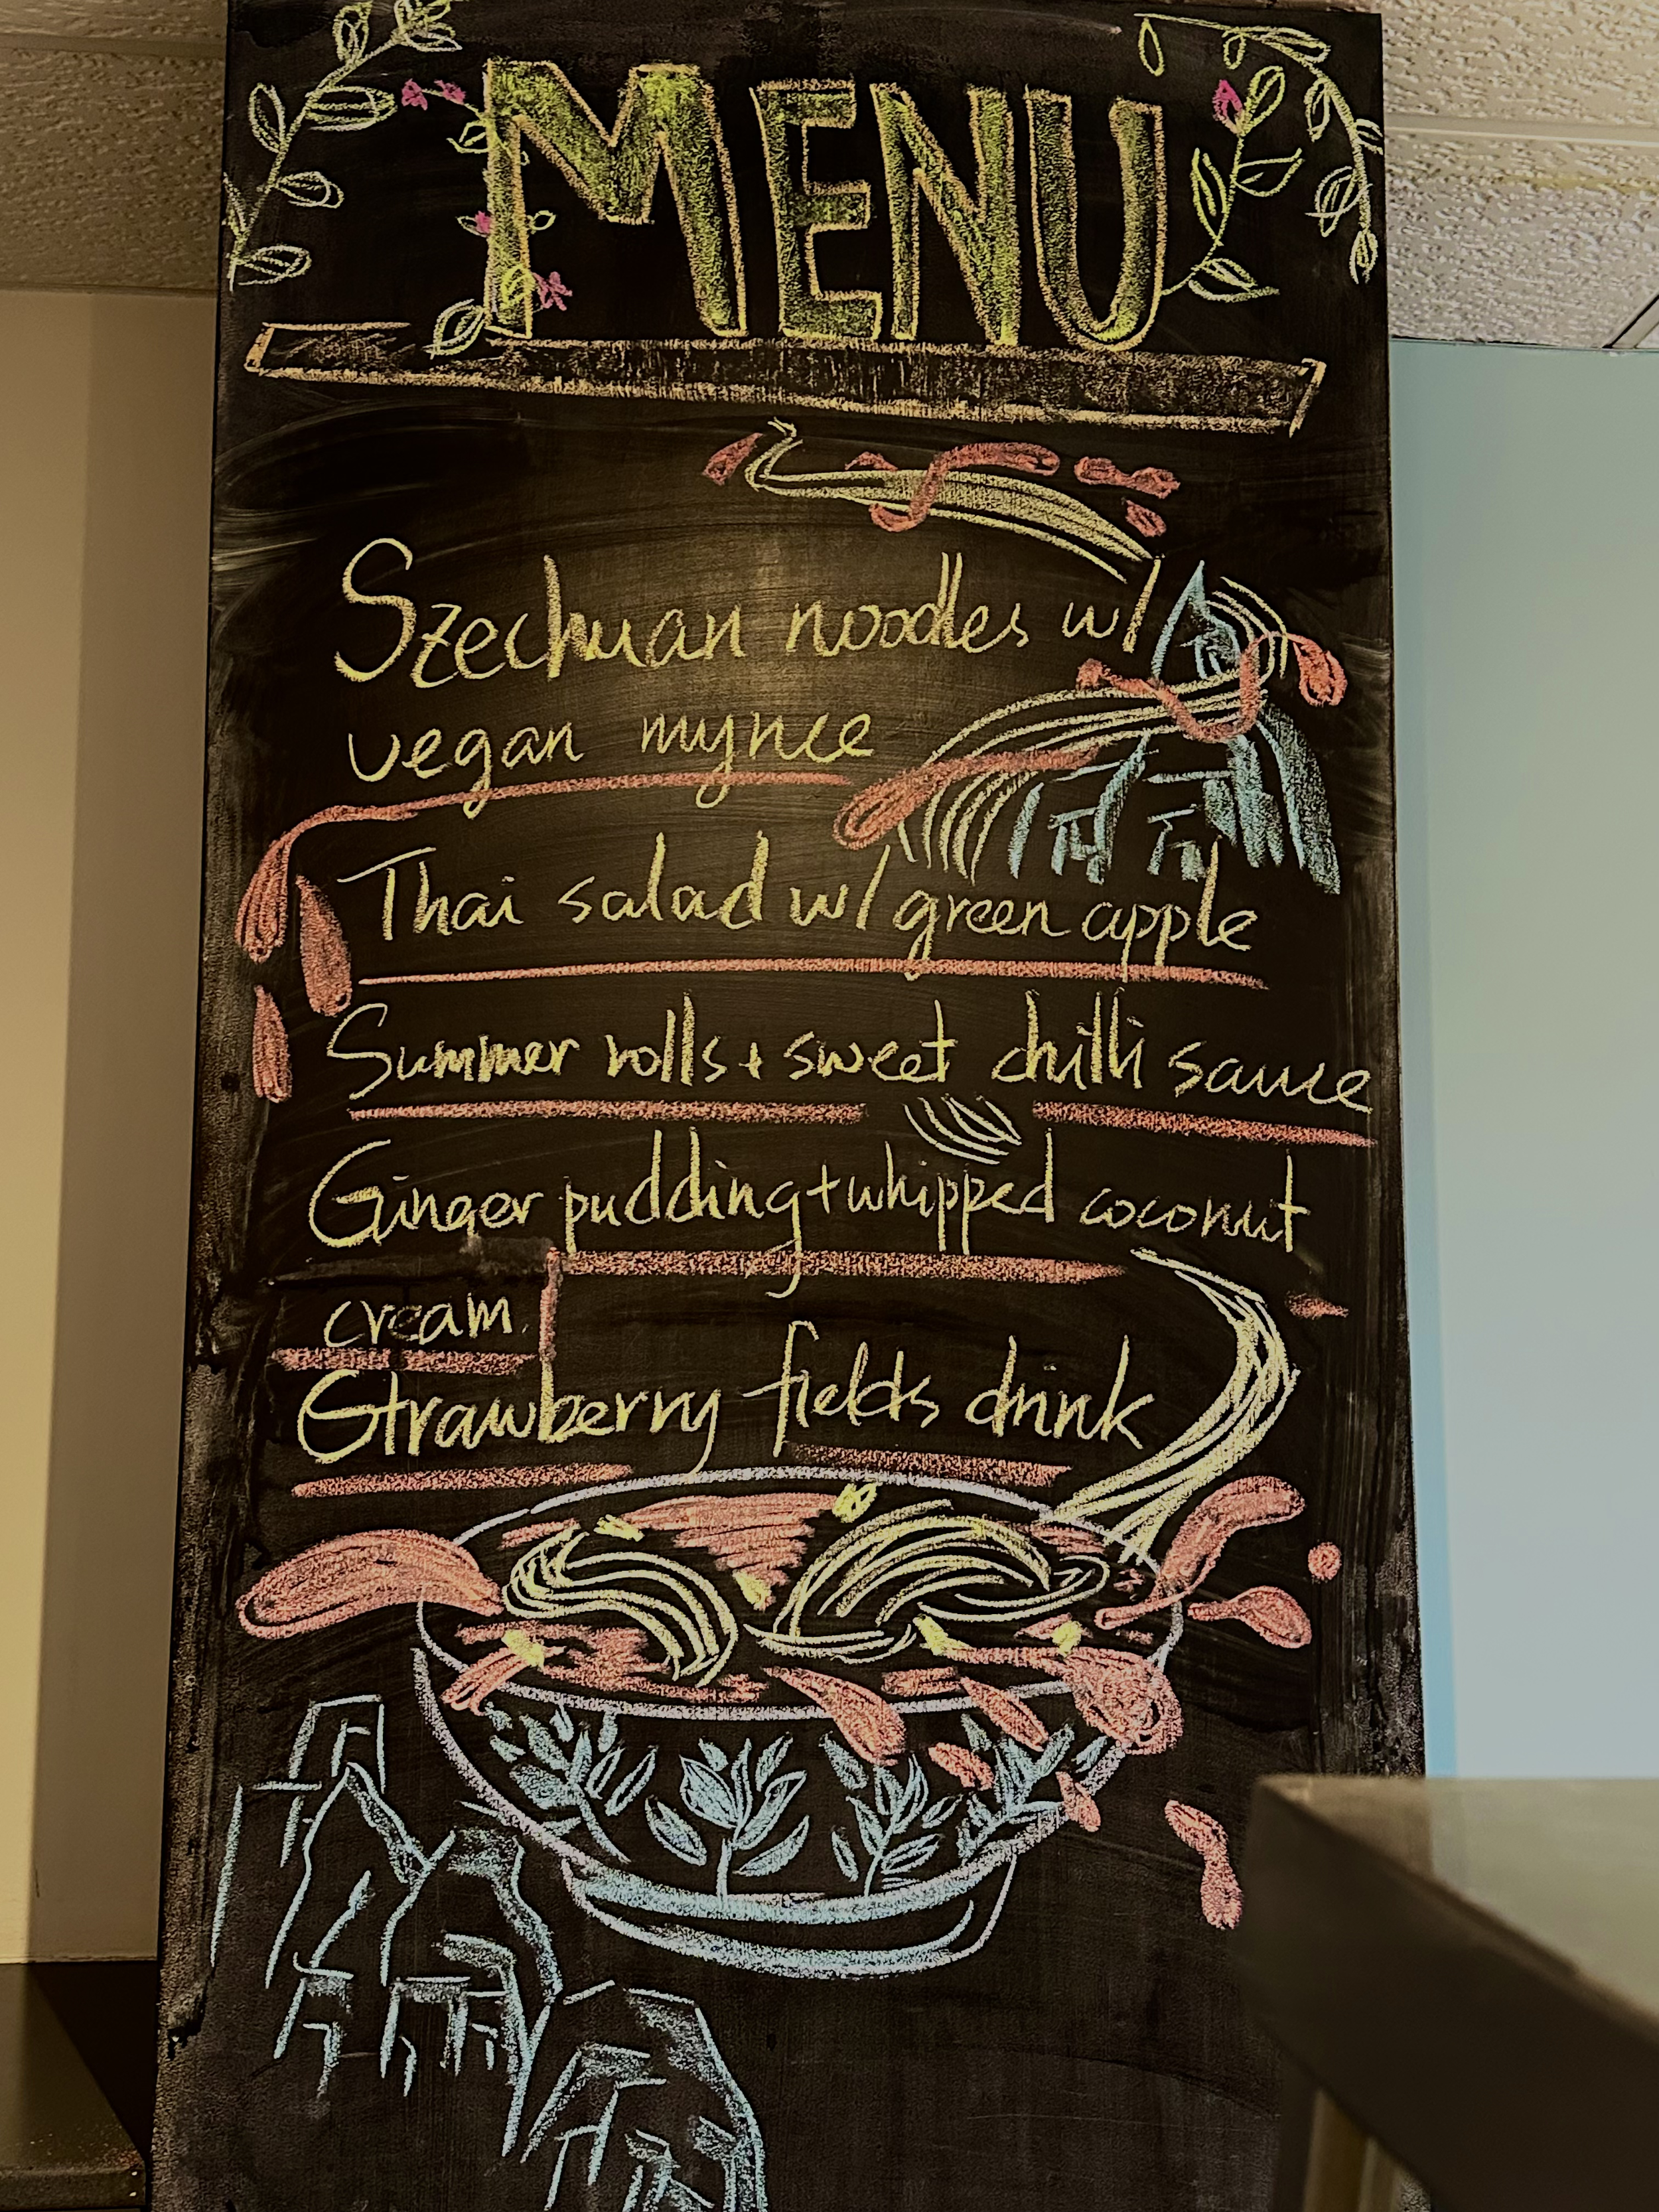 MENU
Szechuan noodles w/
vegan mynce
Thai salad w/ green apple
Summer rolls + sweet chilli sauce
Ginger pudding + whipped coconut
cream
Strawberry fields drink